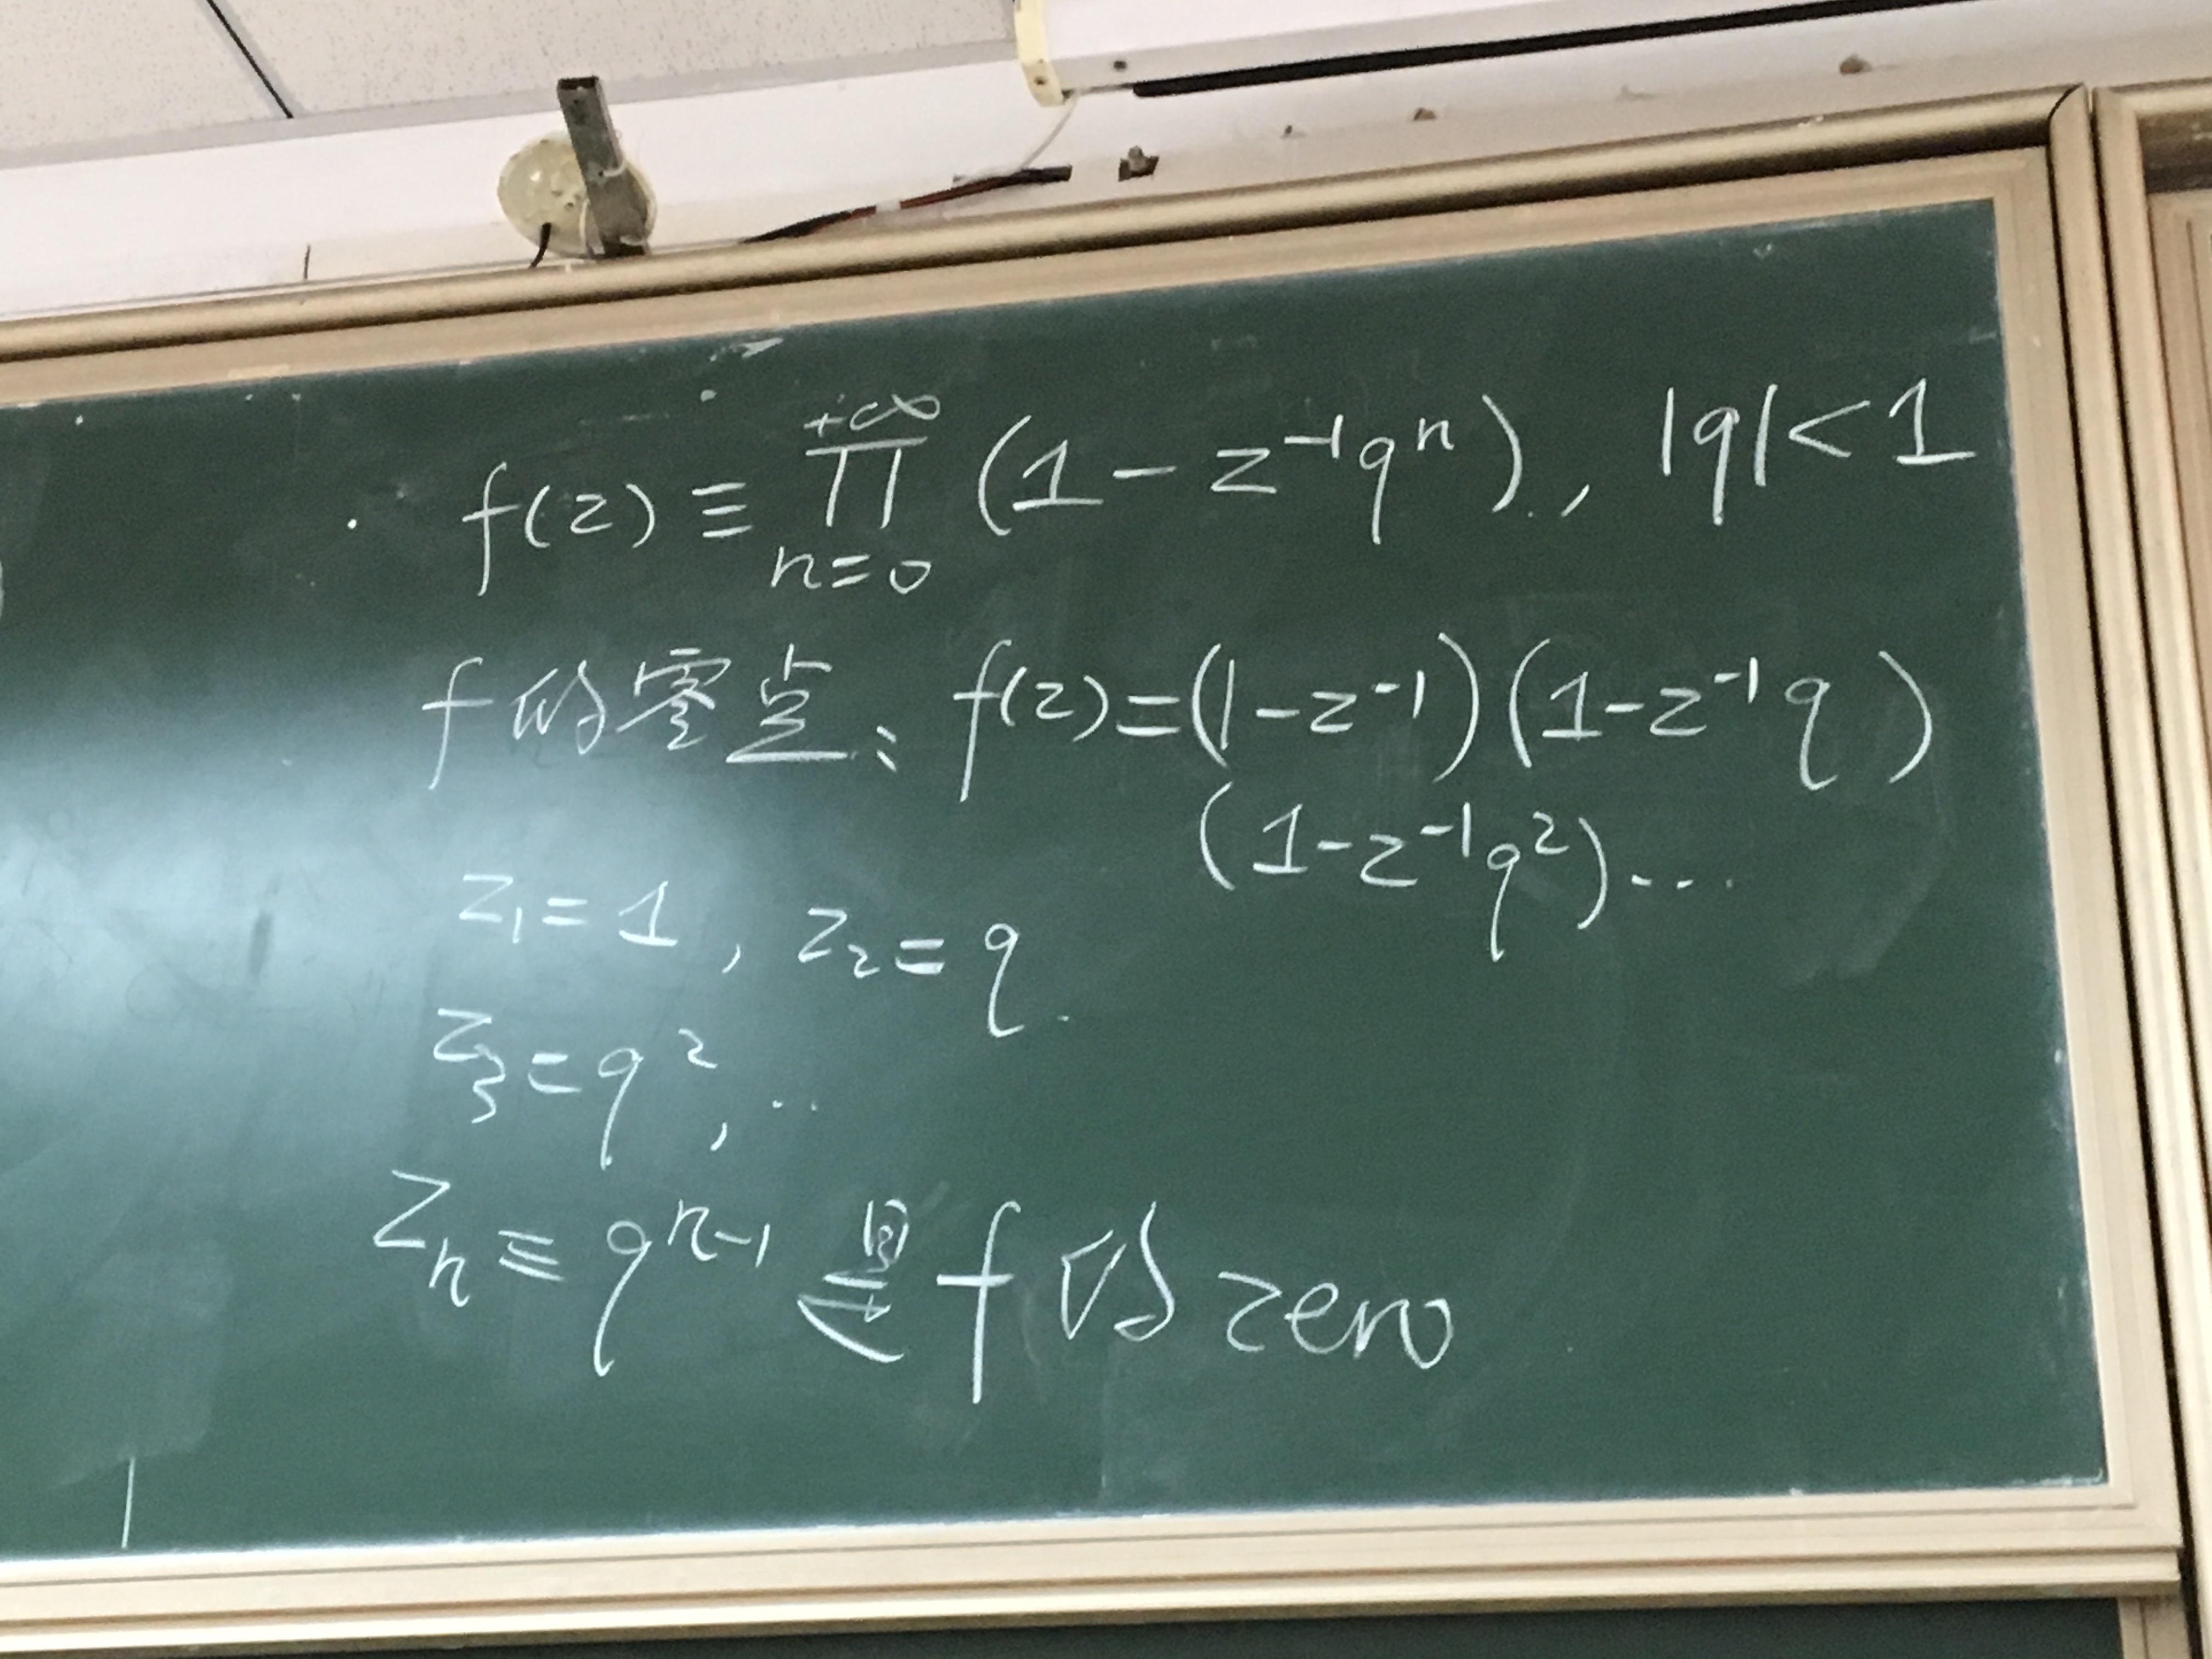 f(z) ≡ ∏_{n=0}^{+∞} (1 - z^{-1}q^n), |q| < 1
f的零点: f(z) = (1 - z^{-1})(1 - z^{-1}q)
(1 - z^{-1}q^2)...
z_1 = 1, z_2 = q.
z_3 = q^2, ..
z_n ≡ q^{n-1} 是 f 的 zero